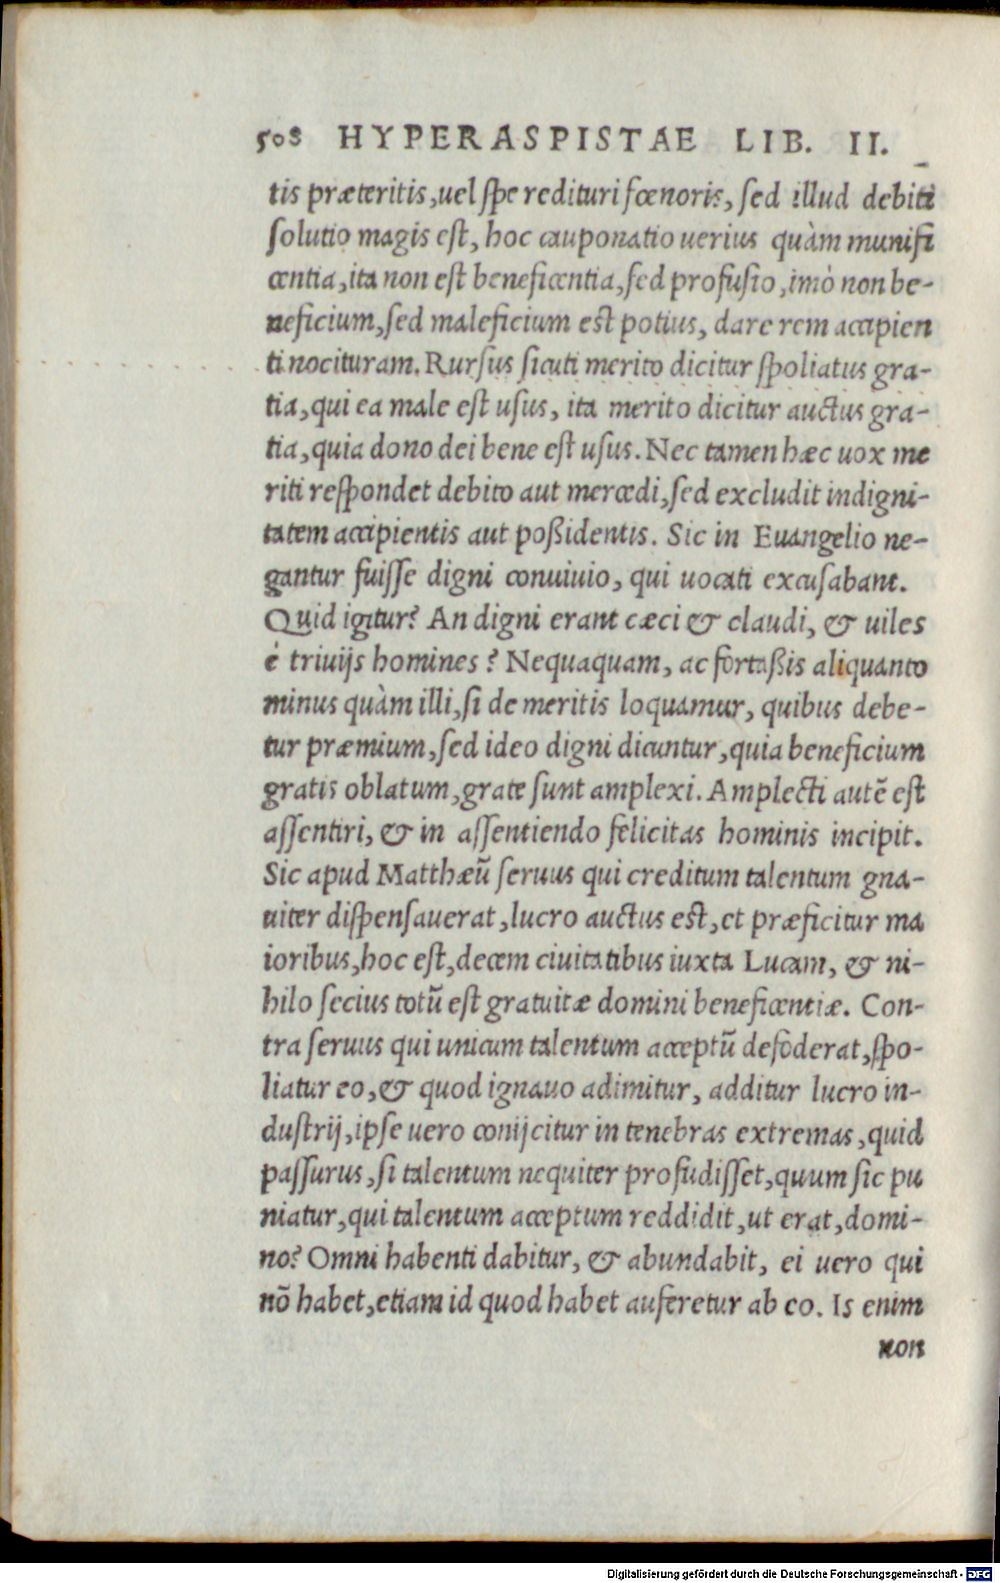 508 HYPERASPISTAE LIB. II.
tis præteritis, uel spe redituri fœnoris, sed illud debiti
solutio magis est, hoc cauponatio uerius quàm munifi
centia, ita non est beneficentia, sed profusio, imò non be-
neficium, sed maleficium est potius, dare rem accipien
ti nocituram. Rursus sicuti merito dicitur spoliatus gra-
tia, qui ea male est usus, ita merito dicitur auctus gra-
tia, quia dono dei bene est usus. Nec tamen hæc uox me
riti respondet debito aut mercedi, sed excludit indigni-
tatem accipientis aut poßidentis. Sic in Euangelio ne-
gantur fuisse digni conuiuio, qui uocati excusabant.
Quid igitur? An digni erant cæci & claudi, & uiles
è triuijs homines? Nequaquam, ac fortaßis aliquanto
minus quàm illi, si de meritis loquamur, quibus debe-
tur præmium, sed ideo digni dicuntur, quia beneficium
gratis oblatum, grate sunt amplexi. Amplecti autē est
assentiri, & in assentiendo felicitas hominis incipit.
Sic apud Matthæū seruus qui creditum talentum gna-
uiter dispensauerat, lucro auctus est, et præficitur ma
ioribus, hoc est, decem ciuitatibus iuxta Lucam, & ni-
hilo secius totū est gratuitæ domini beneficentiæ. Con-
tra seruus qui unicum talentum acceptū defoderat, spo-
liatur eo, & quod ignauo adimitur, additur lucro in-
dustrij, ipse uero conijcitur in tenebras extremas, quid
passurus, si talentum nequiter profudisset, quum sic pu
niatur, qui talentum acceptum reddidit, ut erat, domi-
no? Omni habenti dabitur, & abundabit, ei uero qui
nō habet, etiam id quod habet auferetur ab eo. Is enim
non
Digitalisierung gefördert durch die Deutsche Forschungsgemeinschaft - DFG